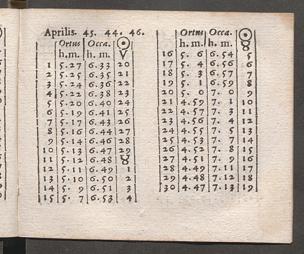 Aprilis. 45. 44. 46.
Ortus Occa. ☉
h. m. h. m. ♈
1 5.27 6.33 20
2 5.25 6.35 21
3 5.24 6.36 22
4 5.22 6.38 23
5 5.20 6.40 24
6 5.19 6.41 25
7 5.17 6.43 26
8 5.16 6.44 27
9 5.14 6.46 28
10 5.13 6.47 29
11 5.12 6.48 ♉
12 5.11 6.49 1
13 5.10 6.50 2
14 5. 9 6.51 3
15 5. 7 6.53 4
Ortus Occa. ☉
h. m. h. m. ♉
16 5. 6 6.54 5
17 5. 4 6.56 6
18 5. 3 6.57 7
19 5. 1 6.59 8
20 5. 0 7. 0 9
21 4.59 7. 1 10
22 4.58 7. 2 11
23 4.56 7. 4 12
24 4.55 7. 5 13
25 4.53 7. 7 14
26 4.52 7. 8 15
27 4.51 7. 9 16
28 4.49 7.11 17
29 4.48 7.12 18
30 4.47 7.13 19